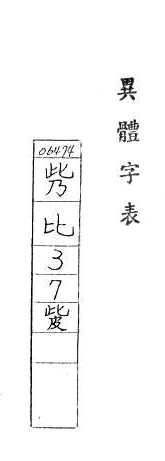 異體字表
06474
比
3
7